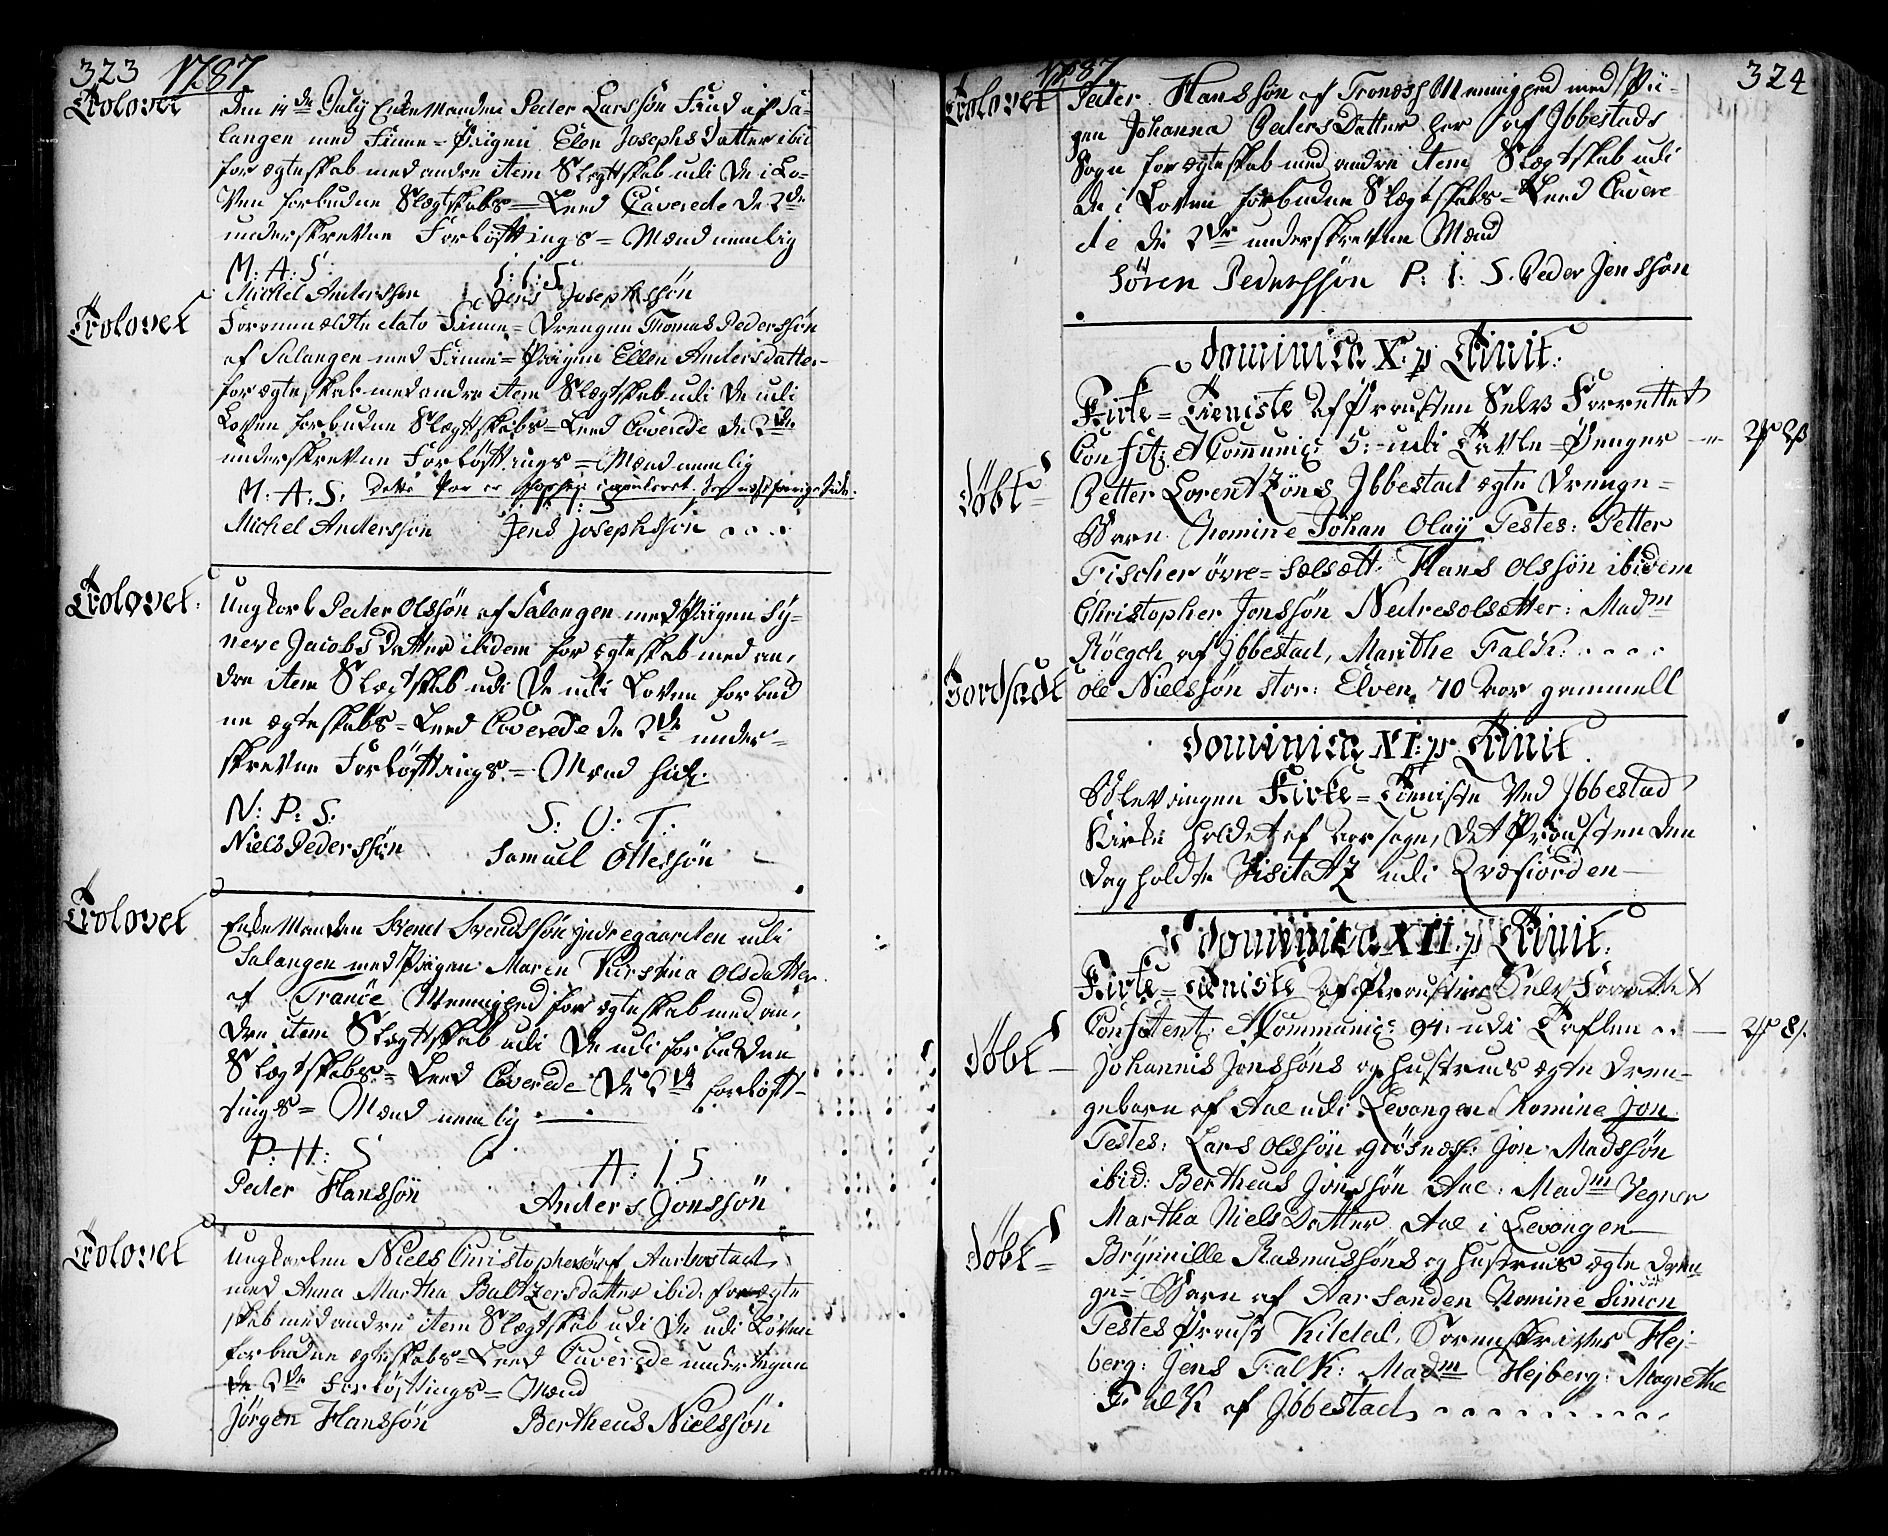 323 1787
Trolovet
Den 14de July Enke Manden Peder Larssøn Find af Sa-
langen med Finne-Pigen Elen Josephs Datter ibid
for ægteskab med andre item Slegtskab udi De i Lo-
ven forbudne Slægtskabs-Leed Caverede De 2de
underskrevne Forløftnings-Mænd nemlig
M: A: S: I: I: S:
Michel Anderssøn Jens Josephssøn
Trolovet
Forommældte dato Finne-Drengen Thomas Pederssøn
af Salangen med Finne-Pigen Ellen Anders datter
for ægteskab med andre item Slægtskab udi De udi
Loven forbudne Slægtskabs-Leed Caverede De 2de
underskrevne Forløftnings-Mænd nemlig
M: A: S: Dette Par er
I: I: S
Michel Anderssøn Jens Josephssøn
Trolovet:
Ungkarl Peder Olssøn af Salangen med Pigen Sy-
neve Jacobs Datter ibidem for ægteskab med an-
dre item Slægtskab udi De udi Loven forbud
ne ægteskabs-Leed Caverede de 2de under-
skrevne Forløftnings-Mænd
N: P: S: S: O: T:
Niels Pederssøn Samuel Ottessøn
Trolovet
Enke Manden Svend Svendssøn Indregaarden udi
Salangen med Pigen Maren Kirstina Olsdatter
af Tranöe Menighed for ægteskab med an-
dre item Slægtskab udi De udi forbudne
Slægtskabs-Leed Caverede De 2de forløft-
nings-Mænd nemlig
P: H: S A: I S
Peder Hanssøn Anders Jonssøn
Trolovet
Ungkarlen Niels Christophersøn af Aarbostad
med Anna Martha Baltzersdatter ibid: for ægte
skab med andre item Slægtskab udi De udi Loven
forbudne ægteskabs-Leed Caverede undertegnede
de 2de Forløftnings-Mænd
Jörgen Hanssøn Bertheus Nielssøn
1787 324
Trolovet
Peder Hanssøn af Tronæss Menighed med Pi-
gen Johanna Peders Datter her af Ibbestads
Sogn for ægteskab med andre item Slægtskab udi
De i Loven forbudne Slægtskabs-Leed Cavere
de de 2de underskrevne Mænd
Sören Pederssøn P: I: S. Peder Jenssøn
Dominica X: p Trinit:
Kirke-Tieniste af Provsten Selv Forrettet
Confit: & Communic: 5: udi Tavle-Penger
Døbt
Petter Lorentzöns Ibbestad ægte Drenge-
Barn Nomine Johan Olay Testes: Petter
Fischer övre-Sælsætt: Hans Olssøn ibidem
Christopher Jonssøn Nedresælsetter: Madm
Röegch af Ibbestad, Marithe Falk.
Jordfæst
Ole Nielssøn Stor: Elven, 70 Aar gammell
Dominica XI: p Trinit
Blev ingen Kirke-Tieniste Ved Ibbestad
Kirke holdet af Aarsage, Det Provsten Den
Dag holdte Visitatz udi Qvæfiorden
Dominica XII: p Trinit:
Kirke-Tieniste af Provsten Selv Forrettet
Confitent: & Communic: 94: udi Taflen
Døbt
Johannis Jonssøns og hustrues ægte Dren-
gebarn af Aae udi Levangen Nomine Jon
Testes: Lars Olssøn Grösnæss: Jon Madssøn
ibid: Bertheus Jonssøn Aae: Madm Vegner
Martha Niels Datter Aae i Levangen
Døbt
Brÿnnille Rasmussøns og hustrues ægte Dren-
ge-Barn af Aarsanden Nomine Simon
Testes Provst Kildal, Sorenskriver Hej-
berg: Jens Falk: Madm Hejberg: Magrethe
Falk af Ibbestad